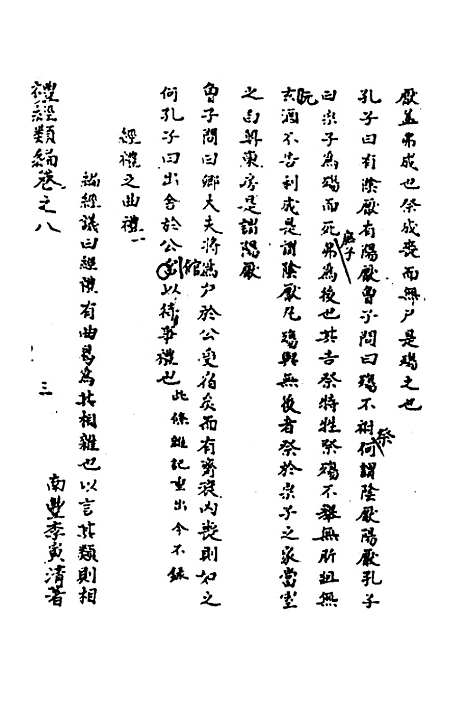 厭蓋弗成也祭成喪而無尸是殤之也
孔子曰有陰厭有陽厭曾子問曰殤不祔祭何謂陰厭陽厭孔子
曰宗子為殤而死庶子弗為後也其吉祭特牲祭殤不舉無肵俎無
玄酒不告利成是謂陰厭凡殤與無後者祭於宗子之家當室
之白尊東房是謂陽厭
曾子問曰卿大夫將為尸於公受宿矣而有齊衰內喪則如之
何孔子曰出舍於公館以待事禮也 此條雜記重出今不錄
經禮之曲禮一
編經議曰經禮有曲曷為其相雜也以言其類則相
禮經類編卷之八
三
南豐李寅清著